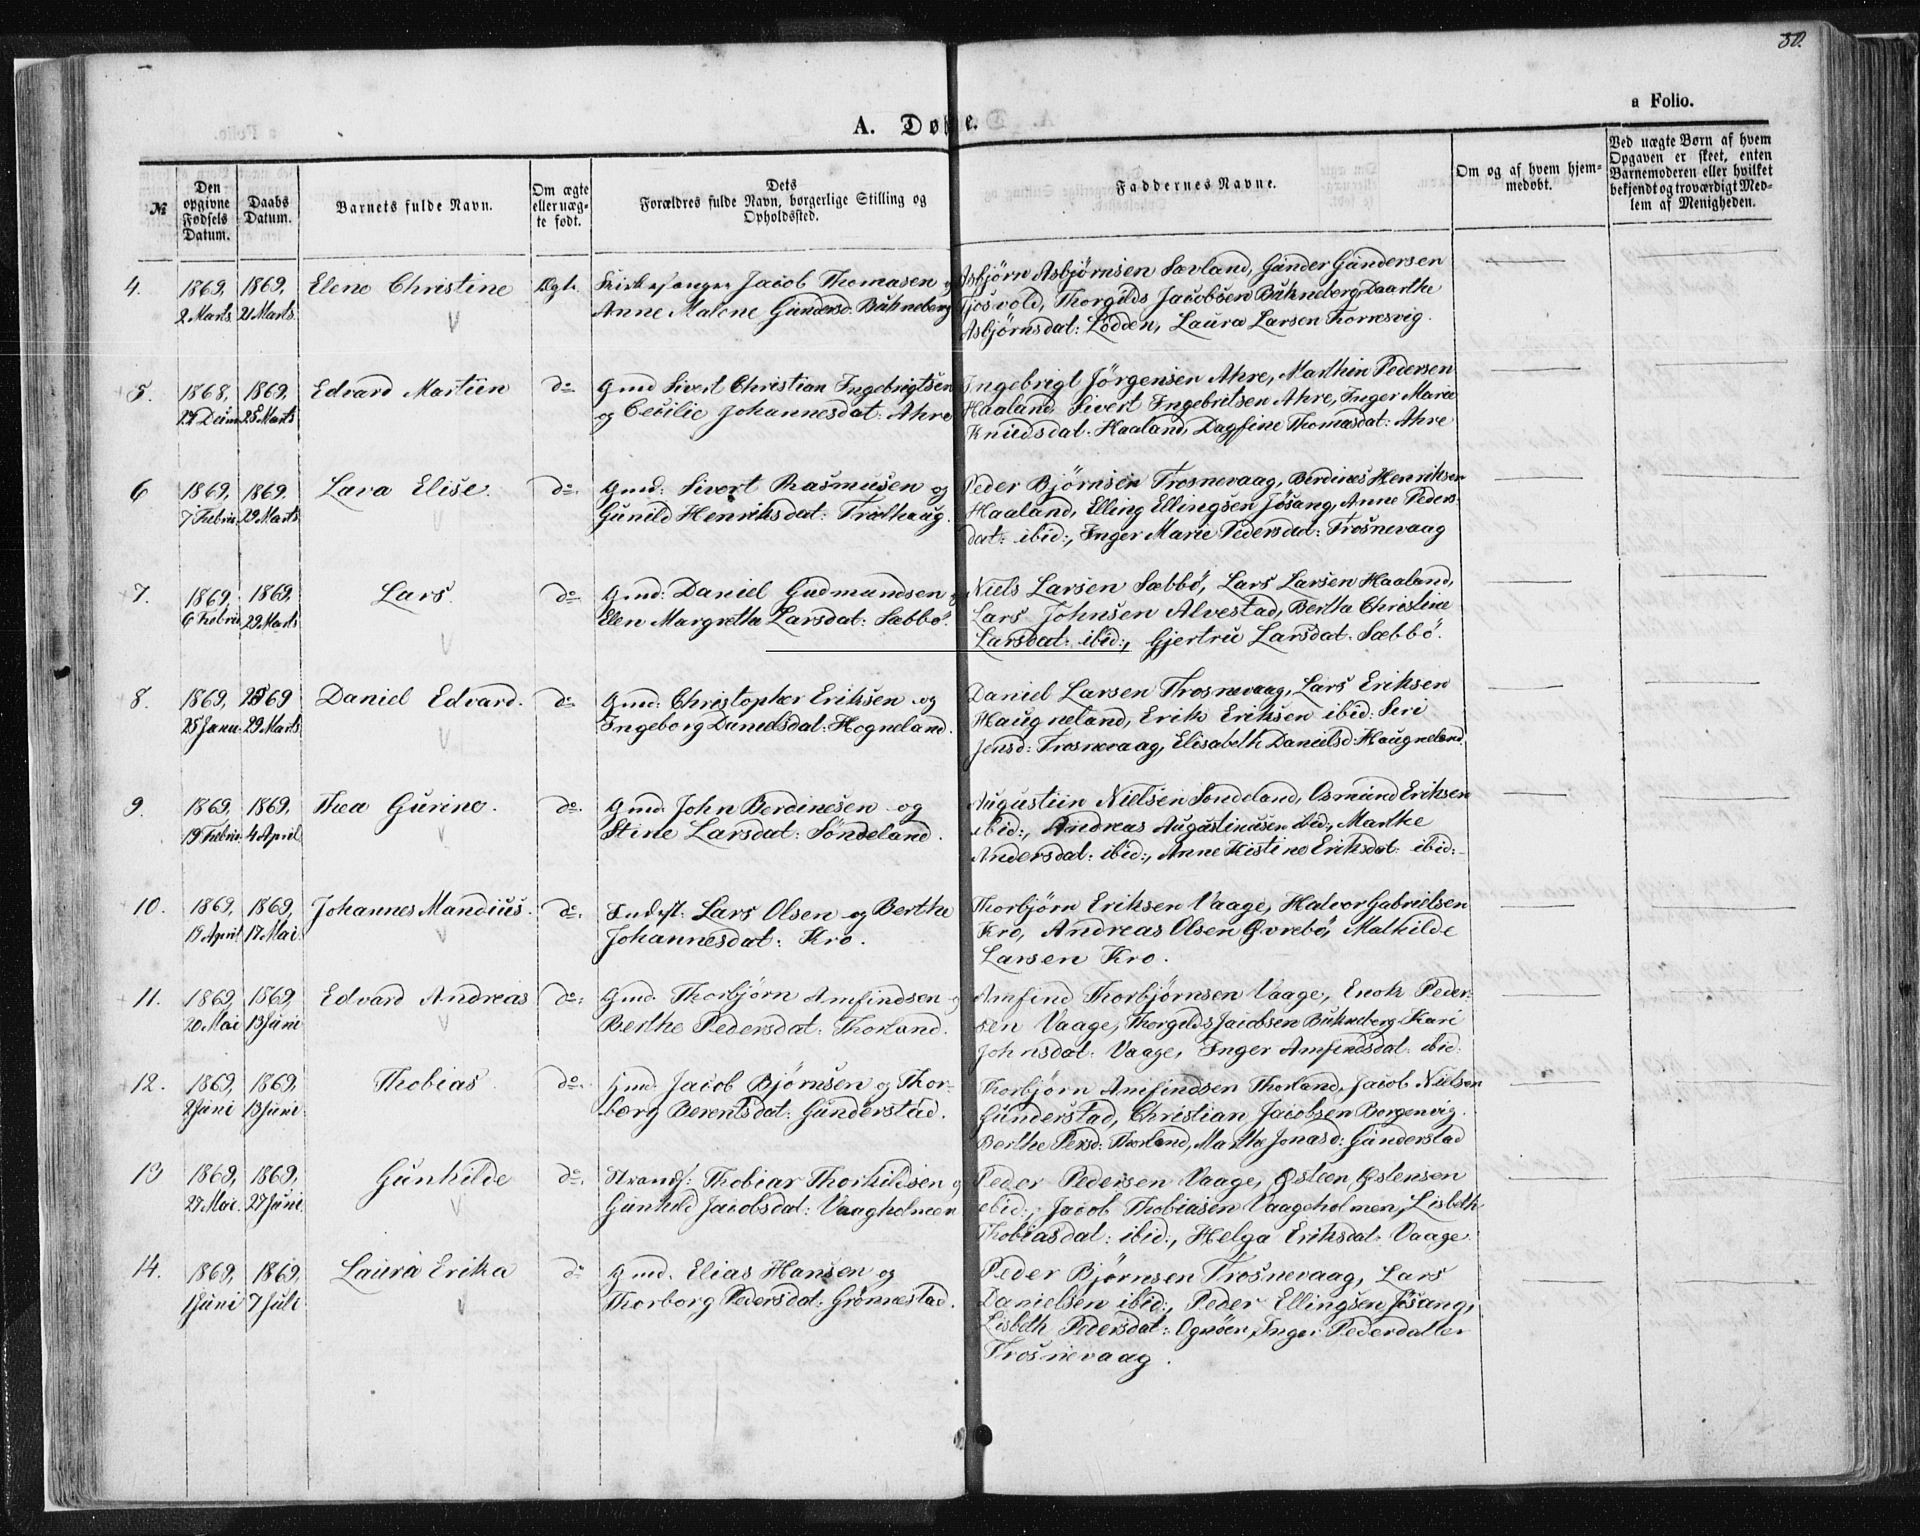 30.
a Folio.
A. Døbte.
№
Den opgivne Fødsels Datum.
Daabs Datum.
Barnets fulde Navn.
Om ægte eller uægte født.
Dets Forældres fulde Navn, borgerlige Stilling og Opholdssted.
Faddernes Navne.
Om og af hvem hjemmedøbt.
Ved uægte Børn af hvem Opgaven er skeet, enten Barnemoderen eller hvilket bekjendt og troværdigt Medlem af Menigheden.
4. 1869, 1869, Elene Christine Ægte Kirkesanger Jacob Thomasen og Asbjørn Asbjørnsen Sævland, Gunder Gundersen
2 Marts 21 Marts Anne Malene Gundersd: Bukneberg Tjosvold, Thorgilds Jacobsen Bukneberg, Daarthe
Asbjørnsdat: Lodden, Laura Larsen Thorresvig.
5. 1868, 1869, Edvard Martiin do Gmd Sivert Christian Ingebrigtsen Ingebrigt Jörgensen Ahre, Marthin Pedersen
25 Marts og Cecilie Johannesdat: Ahre Haaland, Sivert Ingebritsen Ahre, Inger Marie
Knudsdat. Haaland, Dagfine Thomasdat: Ahre
6 1869, 1869. Lava Elise. do. Gmd: Sivert Rasmussen og Peder Bjørnsen Trosnevaag, Berdines Henriksen
7 Febru 29 Marts Gunild Henriksdat: Trolhaug. Haaland, Elling Ellingsen Jösang, Anne Peders-
dat: ibid:, Inger Marie Pedersdat: Trosnevaag
7. 1869, 1869, Lars. do Gmd: Daniel Gudmundsen og Niels Larsen Sæbbö, Lars Larsen Haaland,
6 Febru 29 Marts Elen Margretha Larsdat: Sæbbö. Lars Johnsen Alvestad, Bertha Christine
Larsdat: ibid:, Gjertru Larsdat. Sæbbö.
8. 1869, 1869 Daniel Edvard. do Gmd: Christopher Eriksen og Daniel Larsen Throsnevaag, Lars Eriksen
25 Janu. 29 Marts Ingeborg Danielsdal: Hogneland. Haugneland, Erik Eriksen ibid: Seri
Jensd: Trosnevaag, Elisabeth Danielsd: Haugneland
9. 1869, 1869, Thea Gurine. do. Gmd. John Berdinesen og Augustiin Nielsen Sondeland, Osmund Eriksen
19 Febru 4 April Stine Larsdat: Söndeland. ibid:, Andreas Augustinusen ibid:, Marthe
Andersdat: ibid:, Anne Kistine Eriksdat: ibid:
10. 1869, 1869, Johannes Mandius. do. Indst: Lars Olsen og Berthe Thorbjørn Eriksen Vaage, Halvor Gabrielsen
19 April 17 Mai Johannesdat: Kro. Kro, Andreas Olsen Øvrebö, Mathilde
Larsen Kro.
11. 1869, 1869, Edvard Andreas do: Gmd. Thorbjørn Amfindsen og Amfind Thorbjørnsen Vaage, Enok Peder-
20 Mai 13 Juni Berthe Pedersdat: Thorland. sen Vaage, Thorgilds Jacobsen Bukneberg Kari
Johnsdat: Vaage, Inger Amfindsdat: ibid:
12. 1869, 1869, Thobias. do. Gmd: Jacob Bjørnsen og Thor- Thorbjørn Amfindsen Thorland, Jacob Nielsen
2 Juni 13 Juni borg Berentsdat: Gunderstad. Gunderstad, Christian Jacobsen Borgenvig.
Berthe Persd: Thorland, Marthe Jonasd: Gunderstad
13 1869, 1869, Gunhilde do. Strands: Thobias Thorkildsen og Peder Pedersen Vaage, Østeen Østensen
27 Mai. 27 Juni Gunhild Jacobsdat: Vaagholmen ibid:, Jacob Thobiasen Vaageholmen, Lisbeth
Thobiasdat: ibid:, Helga Eriksdat: Vaage
14. 1869, 1869, Laura Erika do Gmd. Elias Hansen og Peder Bjørnsen Trosnevaag, Lars
1 Juni 7 Juli Thorborg Pedersdat: Grönnestad. Danielsen ibid:, Peder Ellingsen Jösang,
Lisbeth Pedersdat: Ognöen, Inger Pederdatter
Trosnevaag.